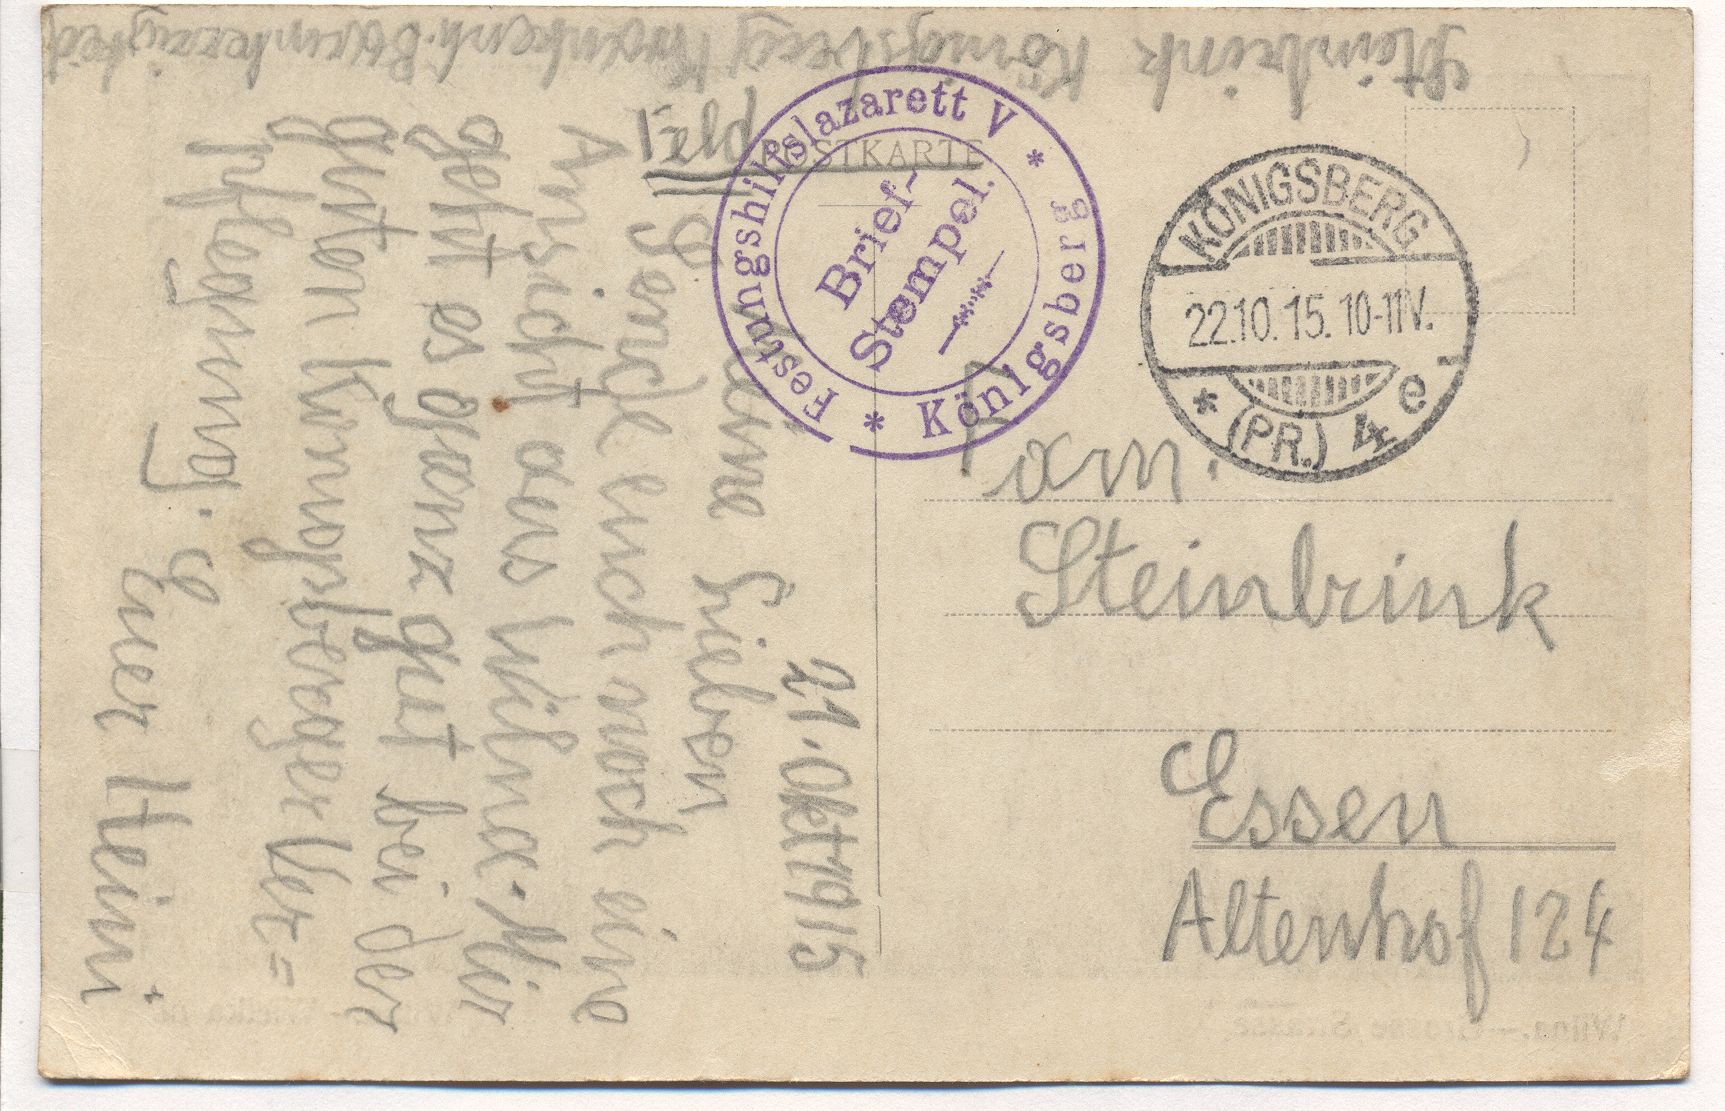 Steinbrink Königsberg
POSTKARTE
Festungshilfslazarett V * Königsberg *
Brief-
Stempel.
KÖNIGSBERG
22.10.15. 10-11V.
* (PR.) 4 e
21. Okt 1915
Meine Lieben
Sende euch noch eine
Ansicht aus Wilna. Mir
geht es ganz gut bei der
guten Königsberger Ver=
pflegung. Euer Heini
Fam.
Steinbrink
Essen
Altenhof 124